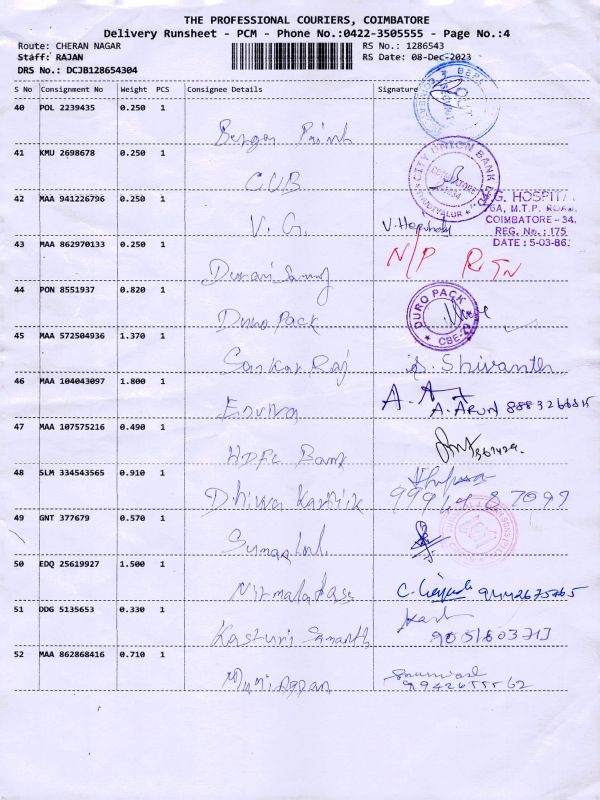 THE PROFESSIONAL COURIERS, COIMBATORE
Delivery Runsheet - PCM - Phone No.:0422-3505555 - Page No.:4
Route: CHERAN NAGAR RS No.: 1286543
Staff: RAJAN RS Date: 08-Dec-2023
DRS No.: DCJB128654304
S No Consignment No Weight PCS Consignee Details Signature
40 POL 2239435 0.250 1
Berger Paint
41 KMU 2698678 0.250 1
CUB
CITY UNION BANK LTD
COIMBATORE
VADAVALLI
42 MAA 941226796 0.250 1
V. G.
V.G. HOSPITAL
6A, M.T.P. ROAD,
COIMBATORE - 34.
REG. No.: 175
DATE : 5-03-86.
43 MAA 862970133 0.250 1
N/P RTN
44 PON 8551937 0.820 1
Duro Pack
DURO PACK
45 MAA 572504936 1.370 1
Sankar Raj S. Shivanth
46 MAA 104043097 1.800 1
A. ARUN
47 MAA 107575216 0.490 1
HDFC Bank
48 SLM 334543565 0.910 1
Dhiwa Karthik
49 GNT 377679 0.570 1
50 EDQ 25619927 1.500 1
Nirmala dass 9442675765
51 DDG 5135653 0.330 1
Kasturi Samanth
52 MAA 862868416 0.710 1
Muniappan